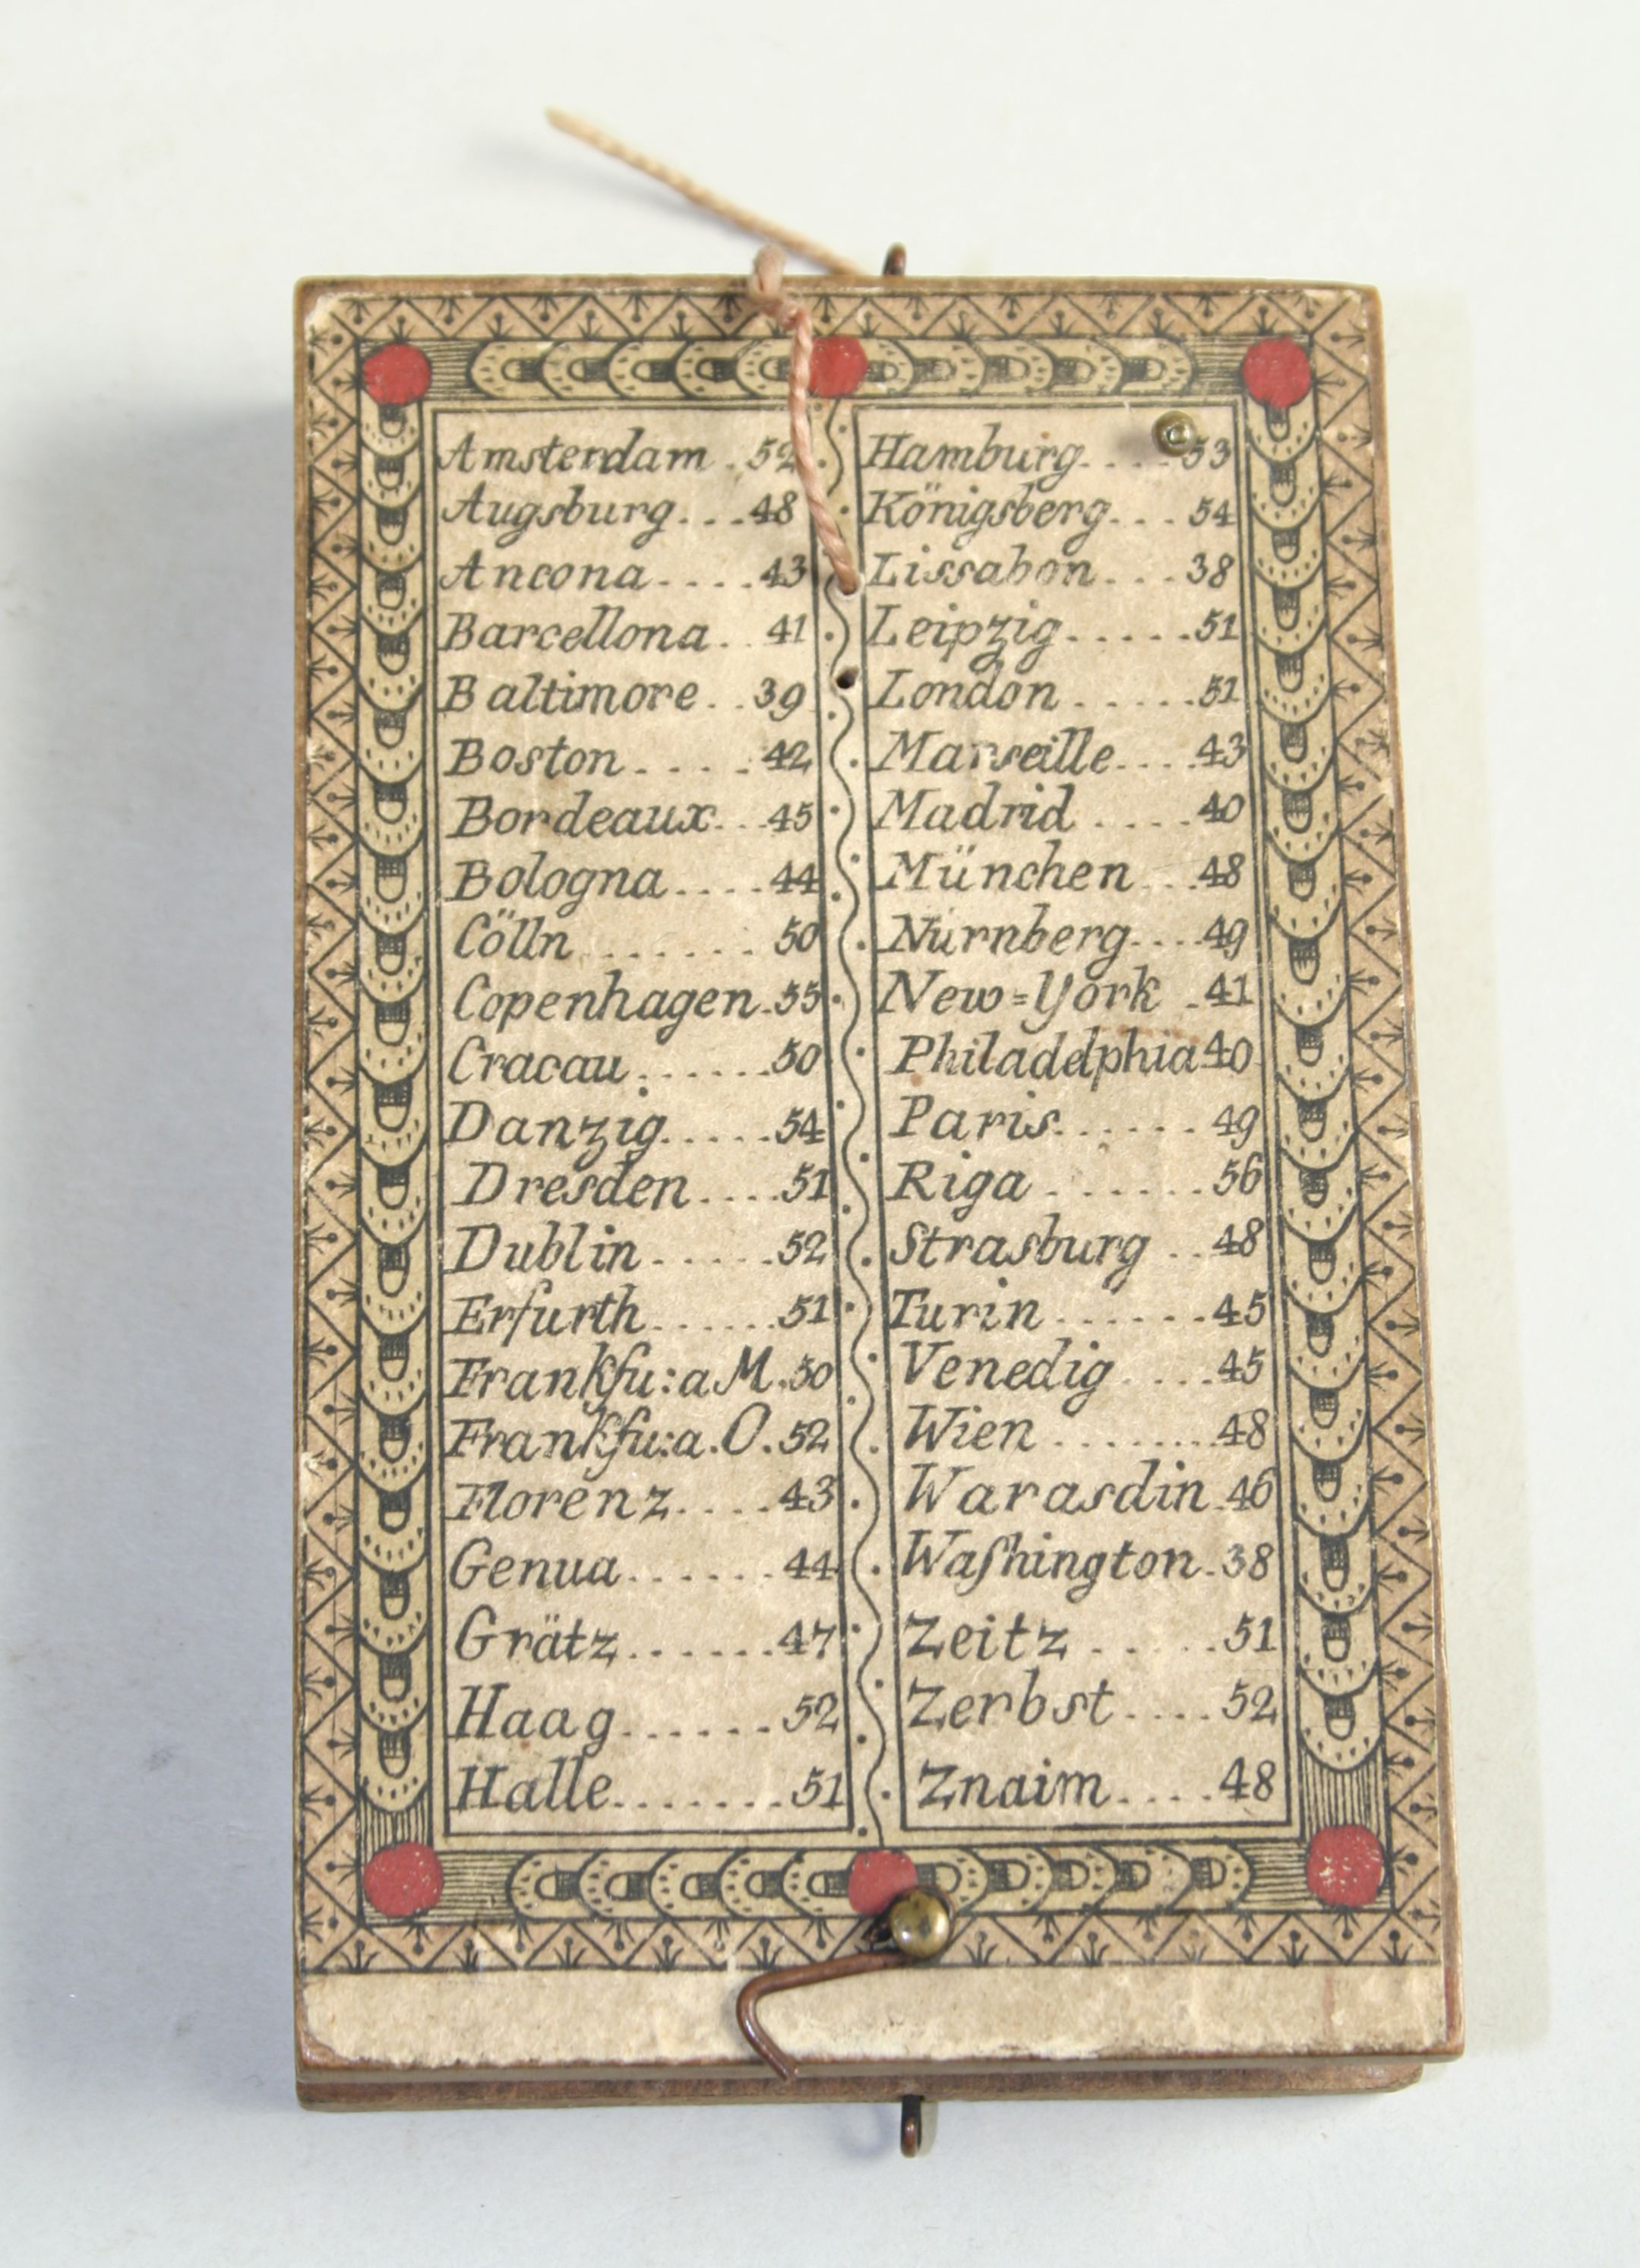 Amsterdam . 52
Augsburg . . . 48
Ancona . . . . 43
Barcellona . . 41
Baltimore . . 39
Boston . . . . 42
Bordeaux . . . 45
Bologna . . . . 44
Cölln . . . . . . . 50
Copenhagen . 55
Cracau . . . . . . 50
Danzig . . . . . 54
Dresden . . . . 51
Dublin . . . . . 52
Erfurth . . . . . . 51
Frankfu: a M . 50
Frankfu: a. O. 52
Florenz . . . . 43
Genua . . . . . . 44
Grätz . . . . . . 47
Haag . . . . . . 52
Halle . . . . . . . 51
Hamburg . . . . 53
Königsberg . . . 54
Lissabon . . . 38
Leipzig . . . . . 51
London . . . . . 51
Marseille . . . . 43
Madrid . . . . 40
München . . . 48
Nürnberg . . . . 49
New=York . 41
Philadelphia 40
Paris . . . . . . 49
Riga . . . . . . 56
Strasburg . . 48
Turin . . . . . . 45
Venedig . . . . 45
Wien . . . . . . . 48
Warasdin . 46
Waſhington . 38
Zeitz . . . . . 51
Zerbst . . . . 52
Znaim . . . . 48